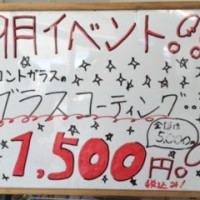 9月イベント!
ロントガラスの
グラスコーティング‥
全面は
5,000
1,500円。
税込み!